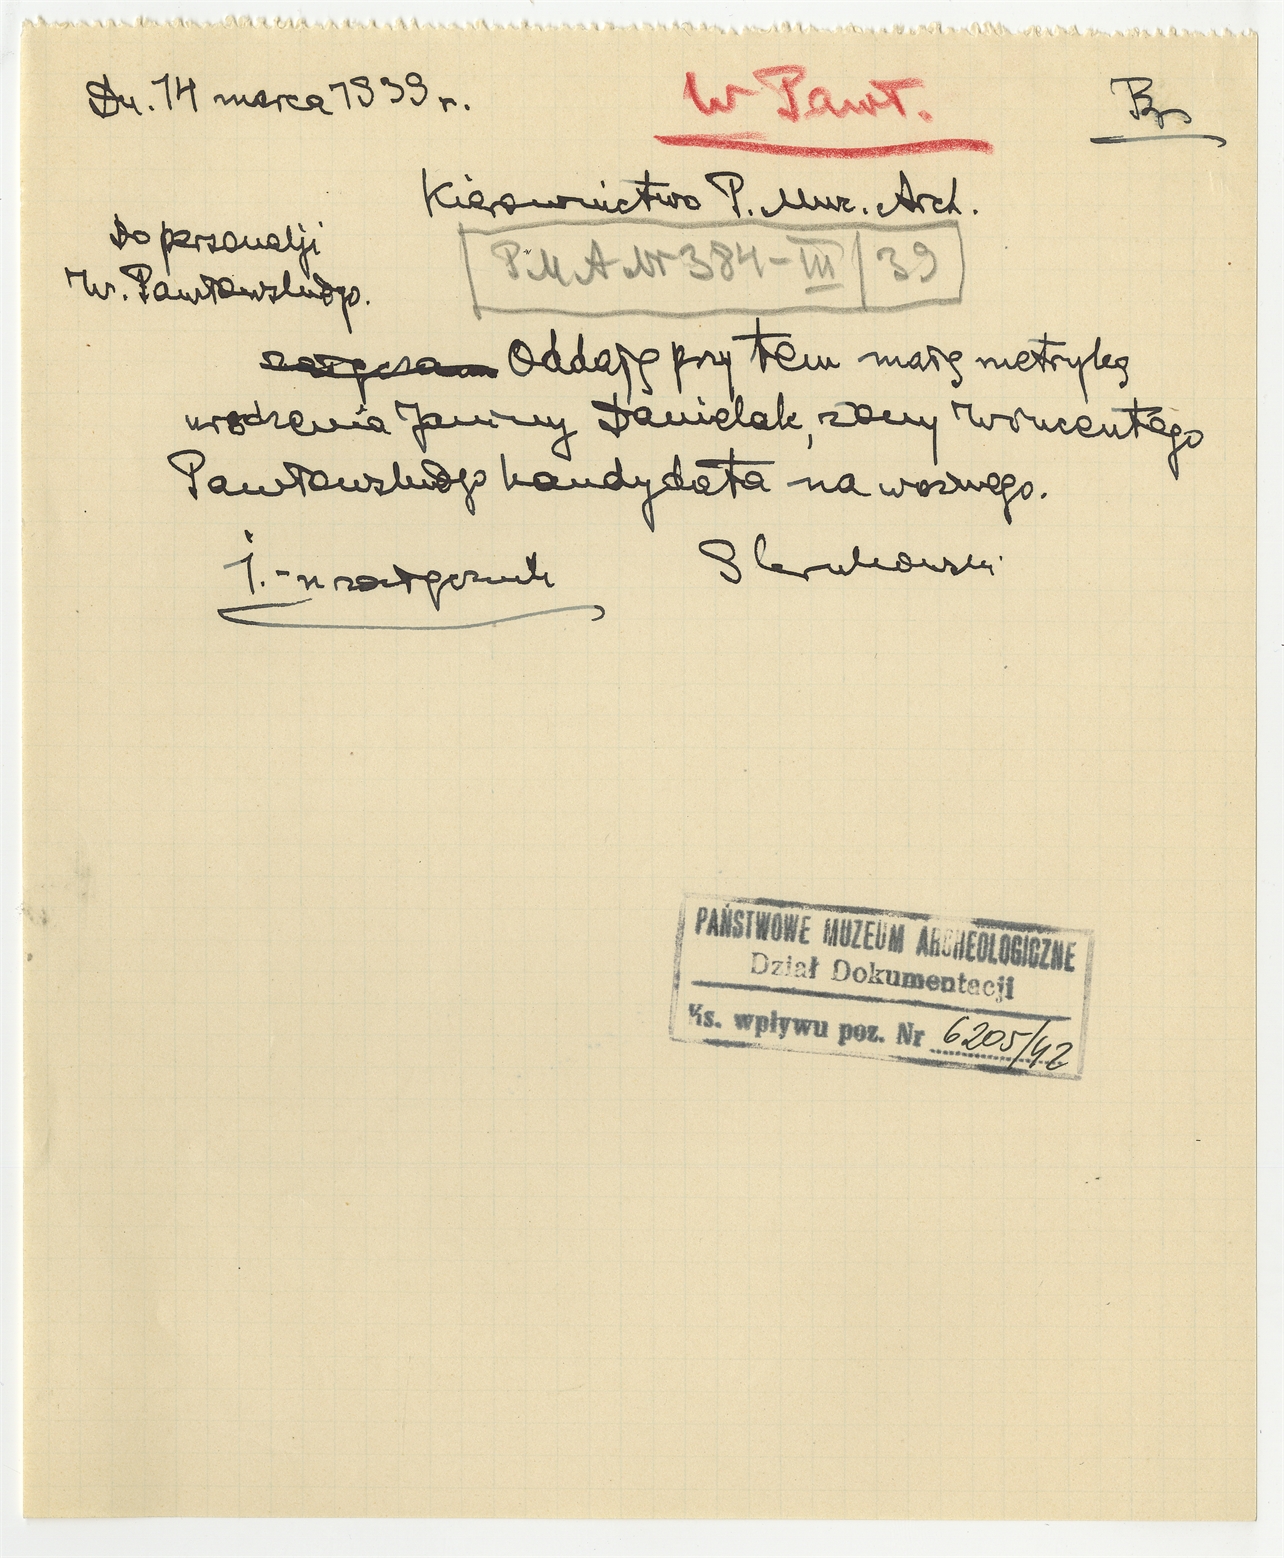 Dn. 14 marca 1939 r.
W Pawł.
Kierownictwo P. Muz. Arch.
Do personalji
W. Pawłowskiego.
PMA Nr 384-III/39
załączam Oddaję przy tem małą metrykę
urodzenia Janiny Danielak, żony Wincentego
Pawłowskiego kandydata na woźnego.
1.-n załącznik
PAŃSTWOWE MUZEUM ARCHEOLOGICZNE
Dział Dokumentacji
Ks. wpływu poz. Nr 6205/42